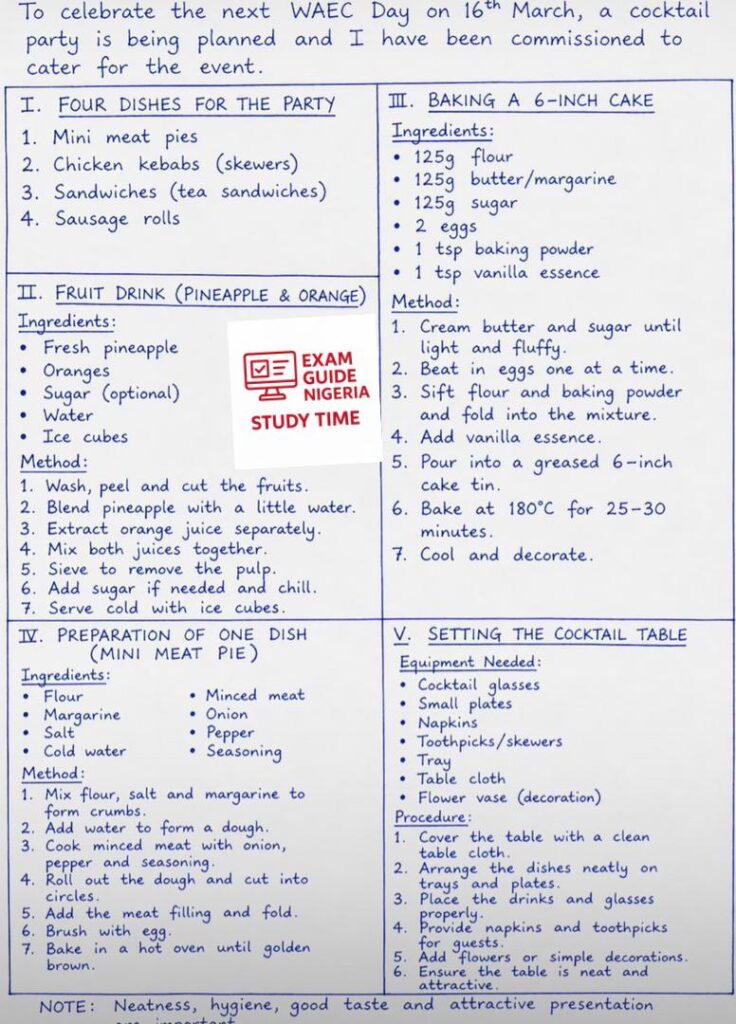 To celebrate the next WAEC Day on 16th March, a cocktail
party is being planned and I have been commissioned to
cater for the event.
I. FOUR DISHES FOR THE PARTY
1. Mini meat pies
2. Chicken kebabs (skewers)
3. Sandwiches (tea sandwiches)
4. Sausage rolls
II. FRUIT DRINK (PINEAPPLE & ORANGE)
Ingredients:
• Fresh pineapple
• Oranges
• Sugar (optional)
• Water
• Ice cubes
EXAM
GUIDE
NIGERIA
STUDY TIME
Method:
1. Wash, peel and cut the fruits.
2. Blend pineapple with a little water.
3. Extract orange juice separately.
4. Mix both juices together.
5. Sieve to remove the pulp.
6. Add sugar if needed and chill.
7. Serve cold with ice cubes.
III. BAKING A 6-INCH CAKE
Ingredients:
• 125g flour
• 125g butter/margarine
• 125g sugar
• 2 eggs
• 1 tsp baking powder
• 1 tsp vanilla essence
Method:
1. Cream butter and sugar until
light and fluffy.
2. Beat in eggs one at a time.
3. Sift flour and baking powder
and fold into the mixture.
4. Add vanilla essence.
5. Pour into a greased 6-inch
cake tin.
6. Bake at 180°C for 25-30
minutes.
7. Cool and decorate.
IV. PREPARATION OF ONE DISH
(MINI MEAT PIE)
Ingredients:
• Flour
• Margarine
• Salt
• Cold water
• Minced meat
• Onion
• Pepper
• Seasoning
Method:
1. Mix flour, salt and margarine to
form crumbs.
2. Add water to form a dough.
3. Cook minced meat with onion,
pepper and seasoning.
4. Roll out the dough and cut into
circles.
5. Add the meat filling and fold.
6. Brush with egg.
7. Bake in a hot oven until golden
brown.
V. SETTING THE COCKTAIL TABLE
Equipment Needed:
• Cocktail glasses
• Small plates
• Napkins
• Toothpicks/skewers
• Tray
• Table cloth
• Flower vase (decoration)
Procedure:
1. Cover the table with a clean
table cloth.
2. Arrange the dishes neatly on
trays and plates.
3. Place the drinks and glasses
properly.
4. Provide napkins and toothpicks
for guests.
5. Add flowers or simple decorations.
6. Ensure the table is neat and
attractive.
NOTE: Neatness, hygiene, good taste and attractive presentation
are important